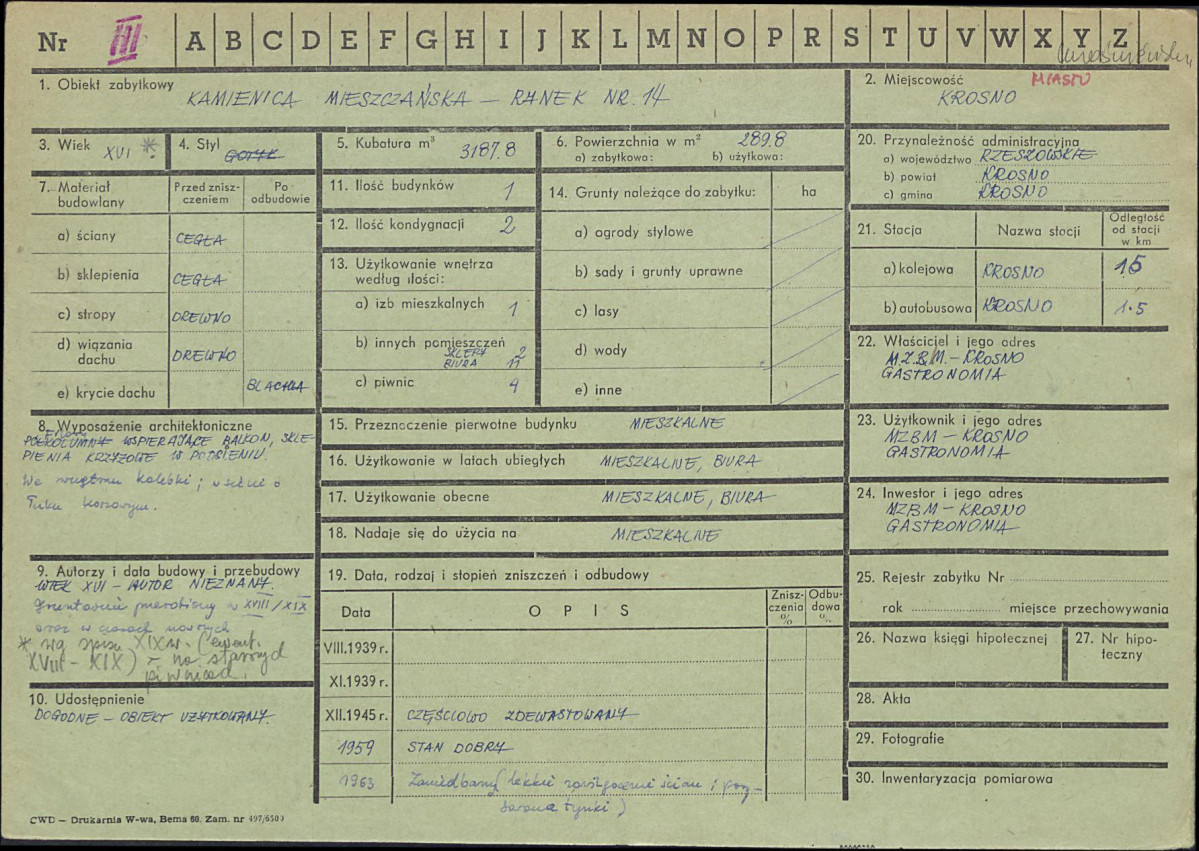 Nr III A B C D E F G H I J K L M N O P R S T U V W X Y Z
1. Obiekt zabytkowy
KAMIENICA MIESZCZAŃSKA – RYNEK NR. 14
2. Miejscowość MIASTO
KROSNO
3. Wiek XVI *
4. Styl GOTYK
5. Kubatura m³ 3187.8
6. Powierzchnia w m² 289.8
a) zabytkowa: b) użytkowa:
20. Przynależność administracyjna
a) województwo RZESZOWSKIE
b) powiat KROSNO
c) gmina KROSNO
7. Materiał budowlany
Przed zniszczeniem
Po odbudowie
a) ściany CEGŁA
b) sklepienia CEGŁA
c) stropy DREWNO
d) wiązania dachu DREWNO
e) krycie dachu BLACHA
11. Ilość budynków 1
12. Ilość kondygnacji 2
13. Użytkowanie wnętrza
według ilości:
a) izb mieszkalnych 1
b) innych pomieszczeń
SKLEPY 2
BIURA 11
c) piwnic 4
14. Grunty należące do zabytku: ha
a) ogrody stylowe
b) sady i grunty uprawne
c) lasy
d) wody
e) inne
21. Stacja Nazwa stacji Odległość od stacji w km
a) kolejowa KROSNO 1.5
b) autobusowa KROSNO 1.5
22. Właściciel i jego adres
M.Z.B.M. – KROSNO
GASTRONOMIA
8. Wyposażenie architektoniczne
PÓŁKOLUMNY WSPIERAJĄCE BALKON, SKLE-
PIENIA KRZYŻOWE W PODSIENIU.
We wnętrzu kolebki;
łuku koszowym.
15. Przeznaczenie pierwotne budynku MIESZKALNE
16. Użytkowanie w latach ubiegłych MIESZKALNE, BIURA
17. Użytkowanie obecne MIESZKALNE, BIURA
18. Nadaje się do użycia na MIESZKALNE
23. Użytkownik i jego adres
MZBM – KROSNO
GASTRONOMIA
24. Inwestor i jego adres
MZBM – KROSNO
GASTRONOMIA
9. Autorzy i data budowy i przebudowy
WIEK XVI – AUTOR NIEZNANY.
gruntownie przerobiony w XVIII/XIX
oraz w czasach nowszych
* wg spisu XIX w. (ewent.
XVIII – XIX) – na starszych
piwnicach.
10. Udostępnienie
DOGODNE – OBIEKT UŻYTKOWANY.
19. Data, rodzaj i stopień zniszczeń i odbudowy
Data OPIS Zniszczenia % Odbudowa %
VIII.1939 r.
XI.1939 r.
XII.1945 r. CZĘŚCIOWO ZDEWASTOWANY
1959 STAN DOBRY
1963 Zaniedbany (lekkie zawilgocenie ścian i
tynki)
25. Rejestr zabytku Nr
rok miejsce przechowywania
26. Nazwa księgi hipotecznej
27. Nr hipoteczny
28. Akta
29. Fotografie
30. Inwentaryzacja pomiarowa
CWD – Drukarnia W-wa, Bema 60. Zam. nr 497/6500